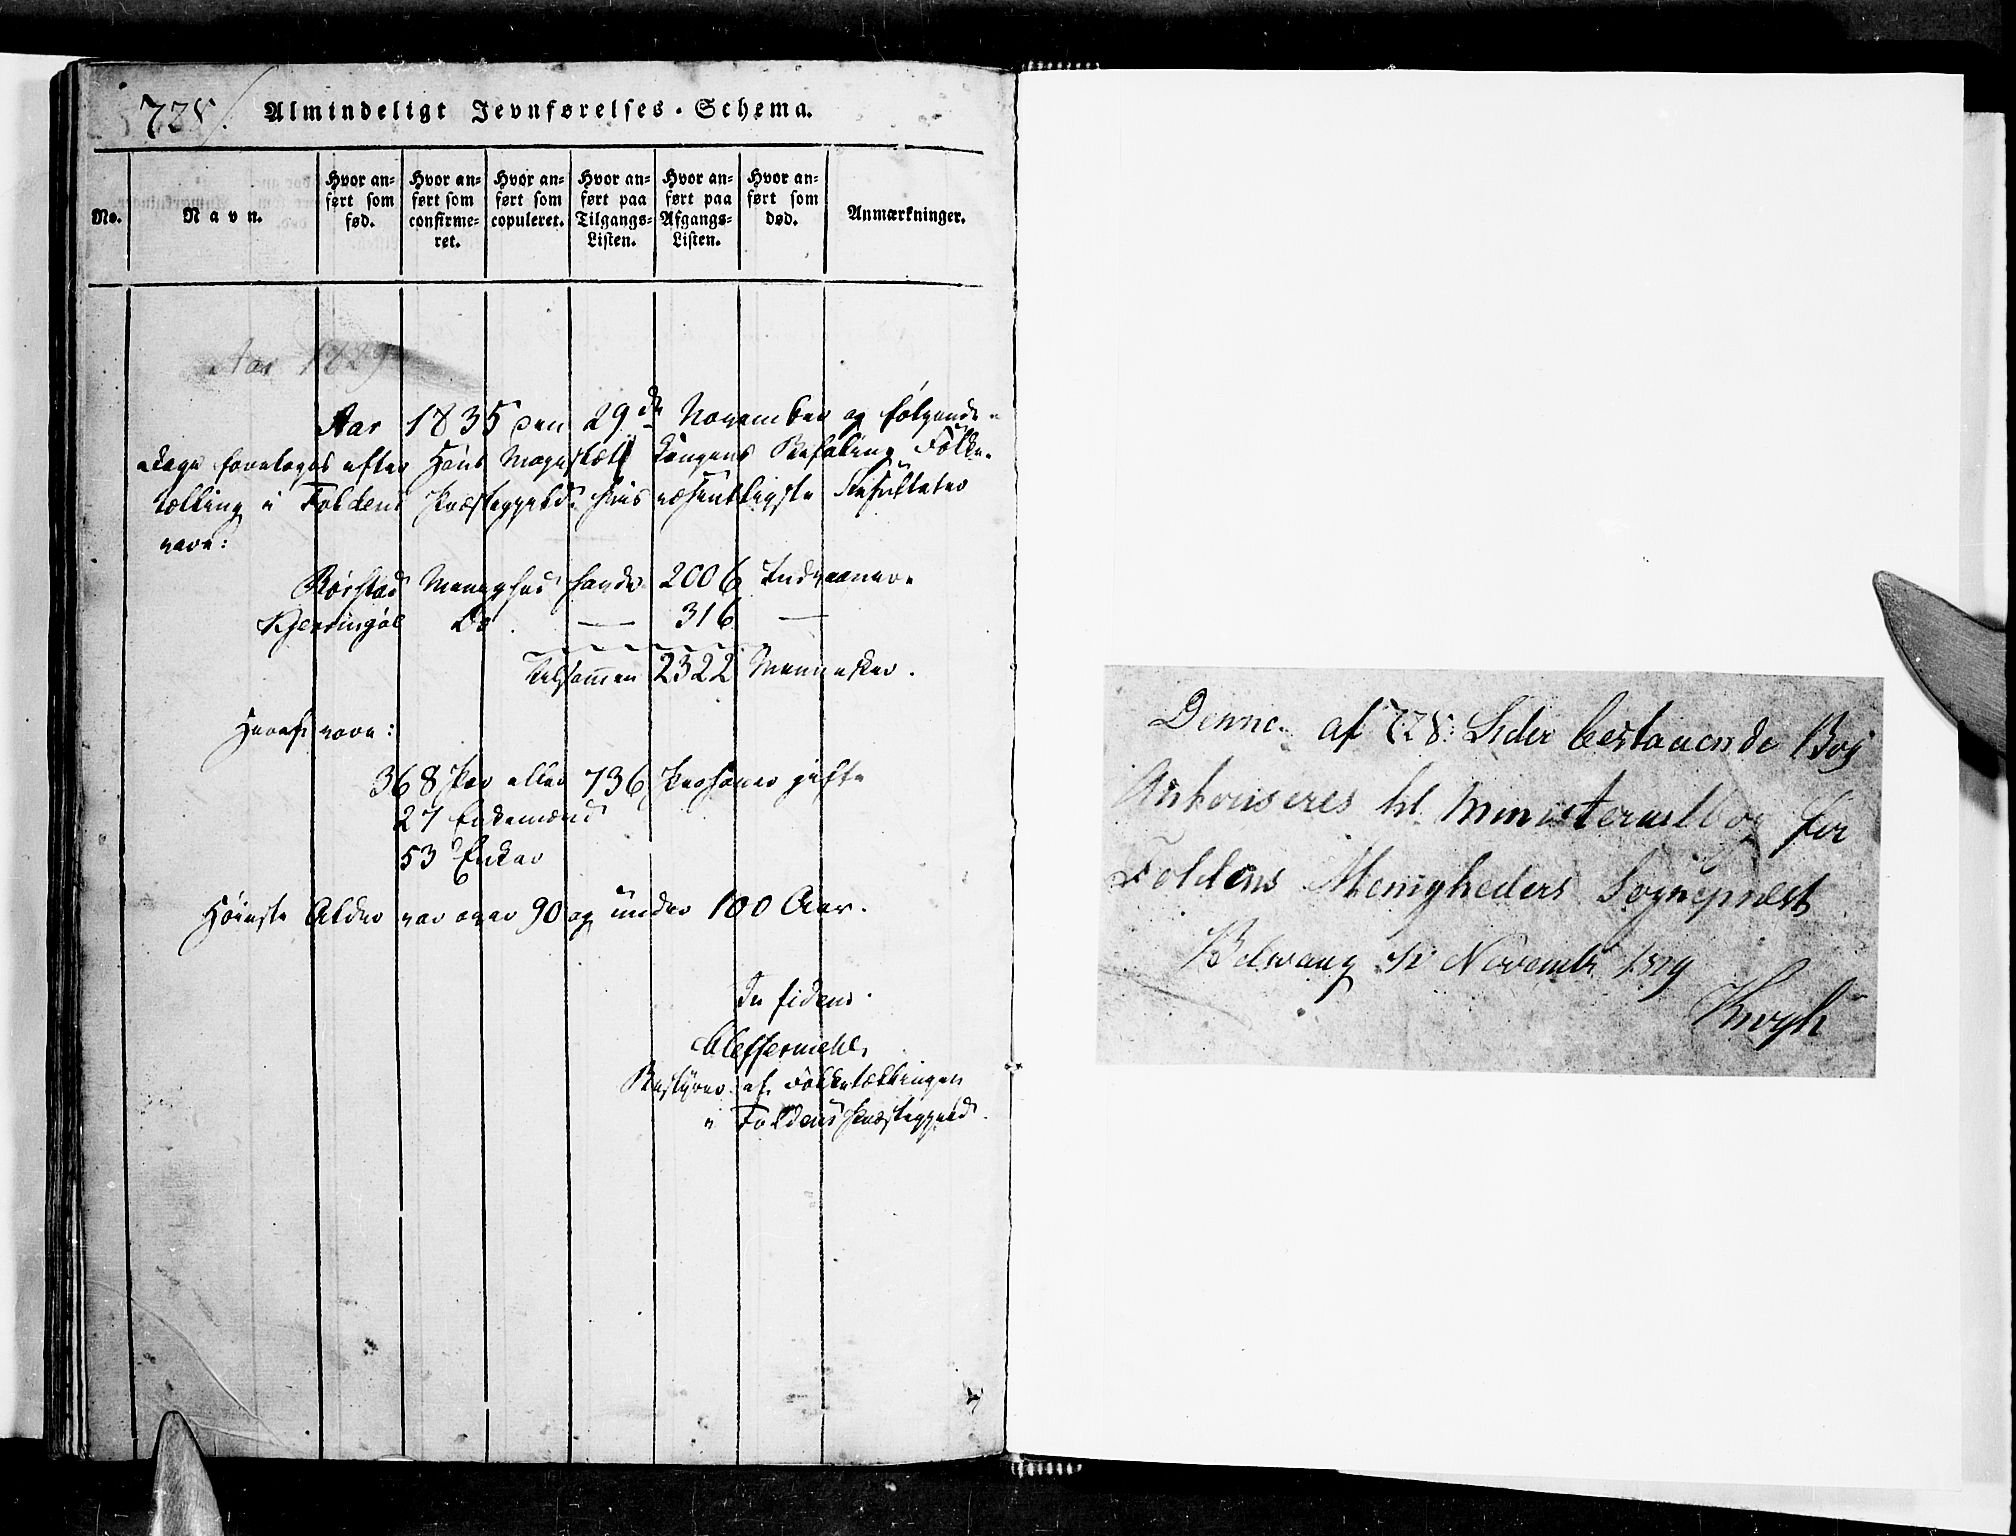 728.
Almindeligt Jevnførelses-Schema.
No.
Navn.
Hvor an-
ført som
fød.
Hvor an-
ført som
confirme-
ret.
Hvor an-
ført som
copuleret.
Hvor an-
ført paa
Tilgangs-
Listen.
Hvor an-
ført paa
Afgangs-
Listen.
Hvor an-
ført som
død.
Anmærkninger.
Aar 1829
Aar 1835 den 29de November og følgende
Dage foretoges efter Hans Majestæts Kongens Befaling Folke-
tælling i Foldens Præstegjeld, hvis væsentligste Resultater
vare:
Rørstad Menighed havde 2006 Indvaanere.
Kjerringøe Do — 316 —
Tilsammen 2322 Mennesker.
Heraf vare:
368 Par eller 736 Personer gifte
27 Enkemænd
53 Enker
Høieste Alder var over 90 og under 100 Aar.
In fidem.
Bestyrer af Folketællingen
i Foldens Præstegjeld.
Denne af 728 Sider bestaaende Bog
Authoriseres til Ministerialbog for
Foldens Menigheders Sognepræst
November 1819
Krogh